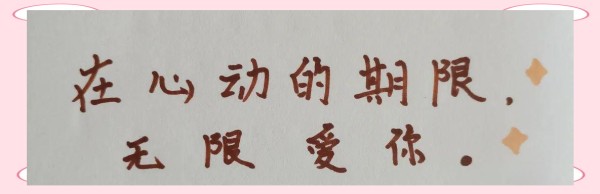 在心动的期限，
无限爱你。